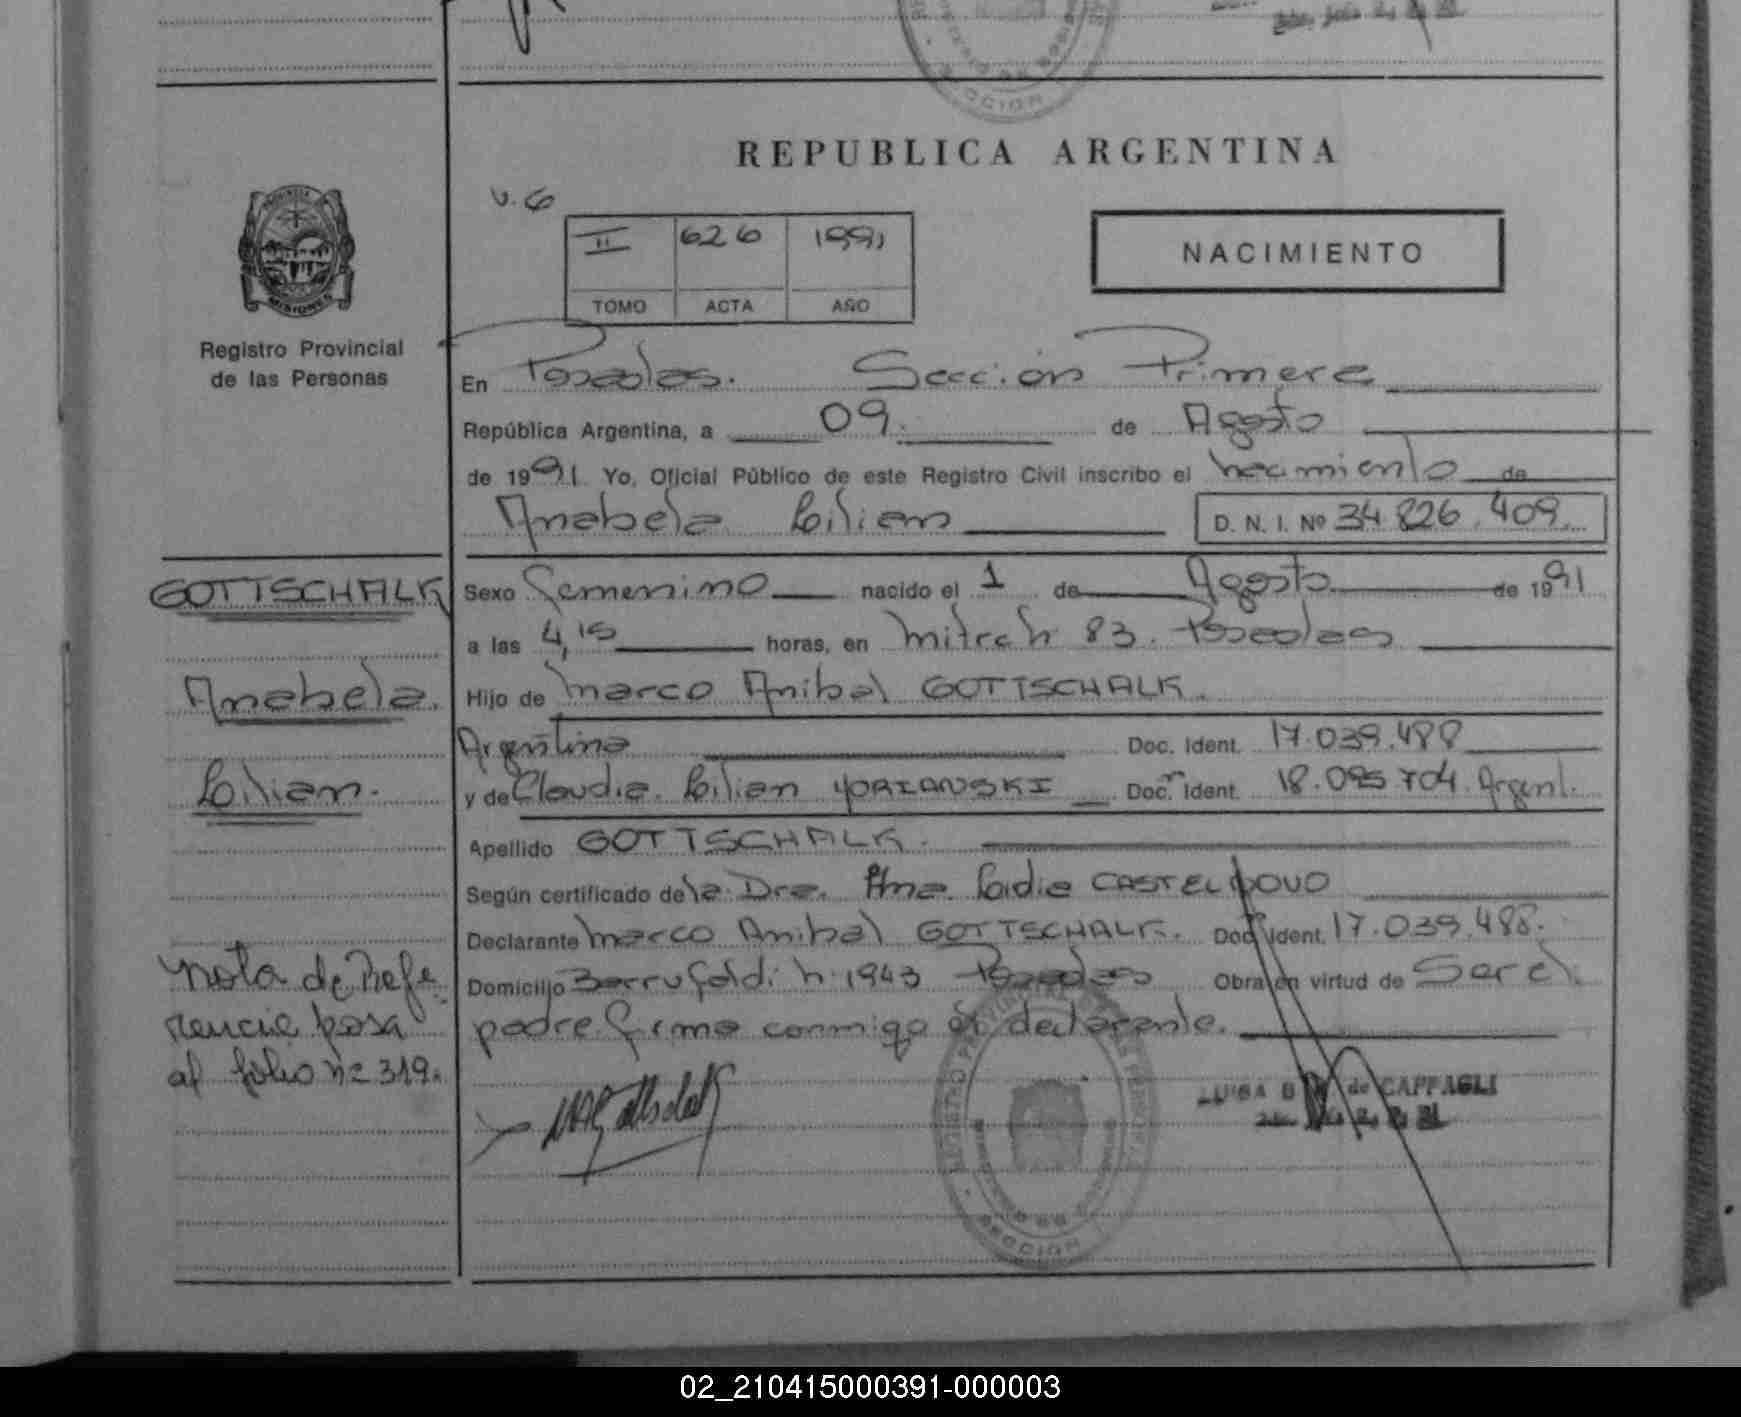 REPUBLICA ARGENTINA
v. 6
II 626 1991
TOMO ACTA AÑO
NACIMIENTO
MISIONES
Registro Provincial
de las Personas
En Posadas. Sección Primera
República Argentina, a 09. de Agosto
de 1991. Yo, Oficial Público de este Registro Civil inscribo el nacimiento de
Anabela Lilian D. N. I. Nº 34.826.409.
GOTTSCHALK
Anabela.
Lilian.
Sexo femenino nacido el 1 de Agosto de 1991
a las 4,15 horas, en Mitre h 83. Posadas
Hijo de Marco Anibal GOTTSCHALK.
Argentino Doc. Ident. 17.039.488
y de Claudia Lilian YORIANSKI Doc. Ident. 18.095.704. Argent.
Apellido GOTTSCHALK.
Según certificado de la Dra. Ana Lidia CASTELNOVO
Declarante Marco Anibal GOTTSCHALK. Doc. Ident. 17.039.488.
Domicilio n 1943 Posadas Obra en virtud de Ser el
padre firma conmigo el declarante.
Nota de Refe
rencia pasa
al folio nº 319.
LUISA B de CAPPAGLI
REGISTRO PROVINCIAL DE LAS PERSONAS
SECCION
02_210415000391-000003